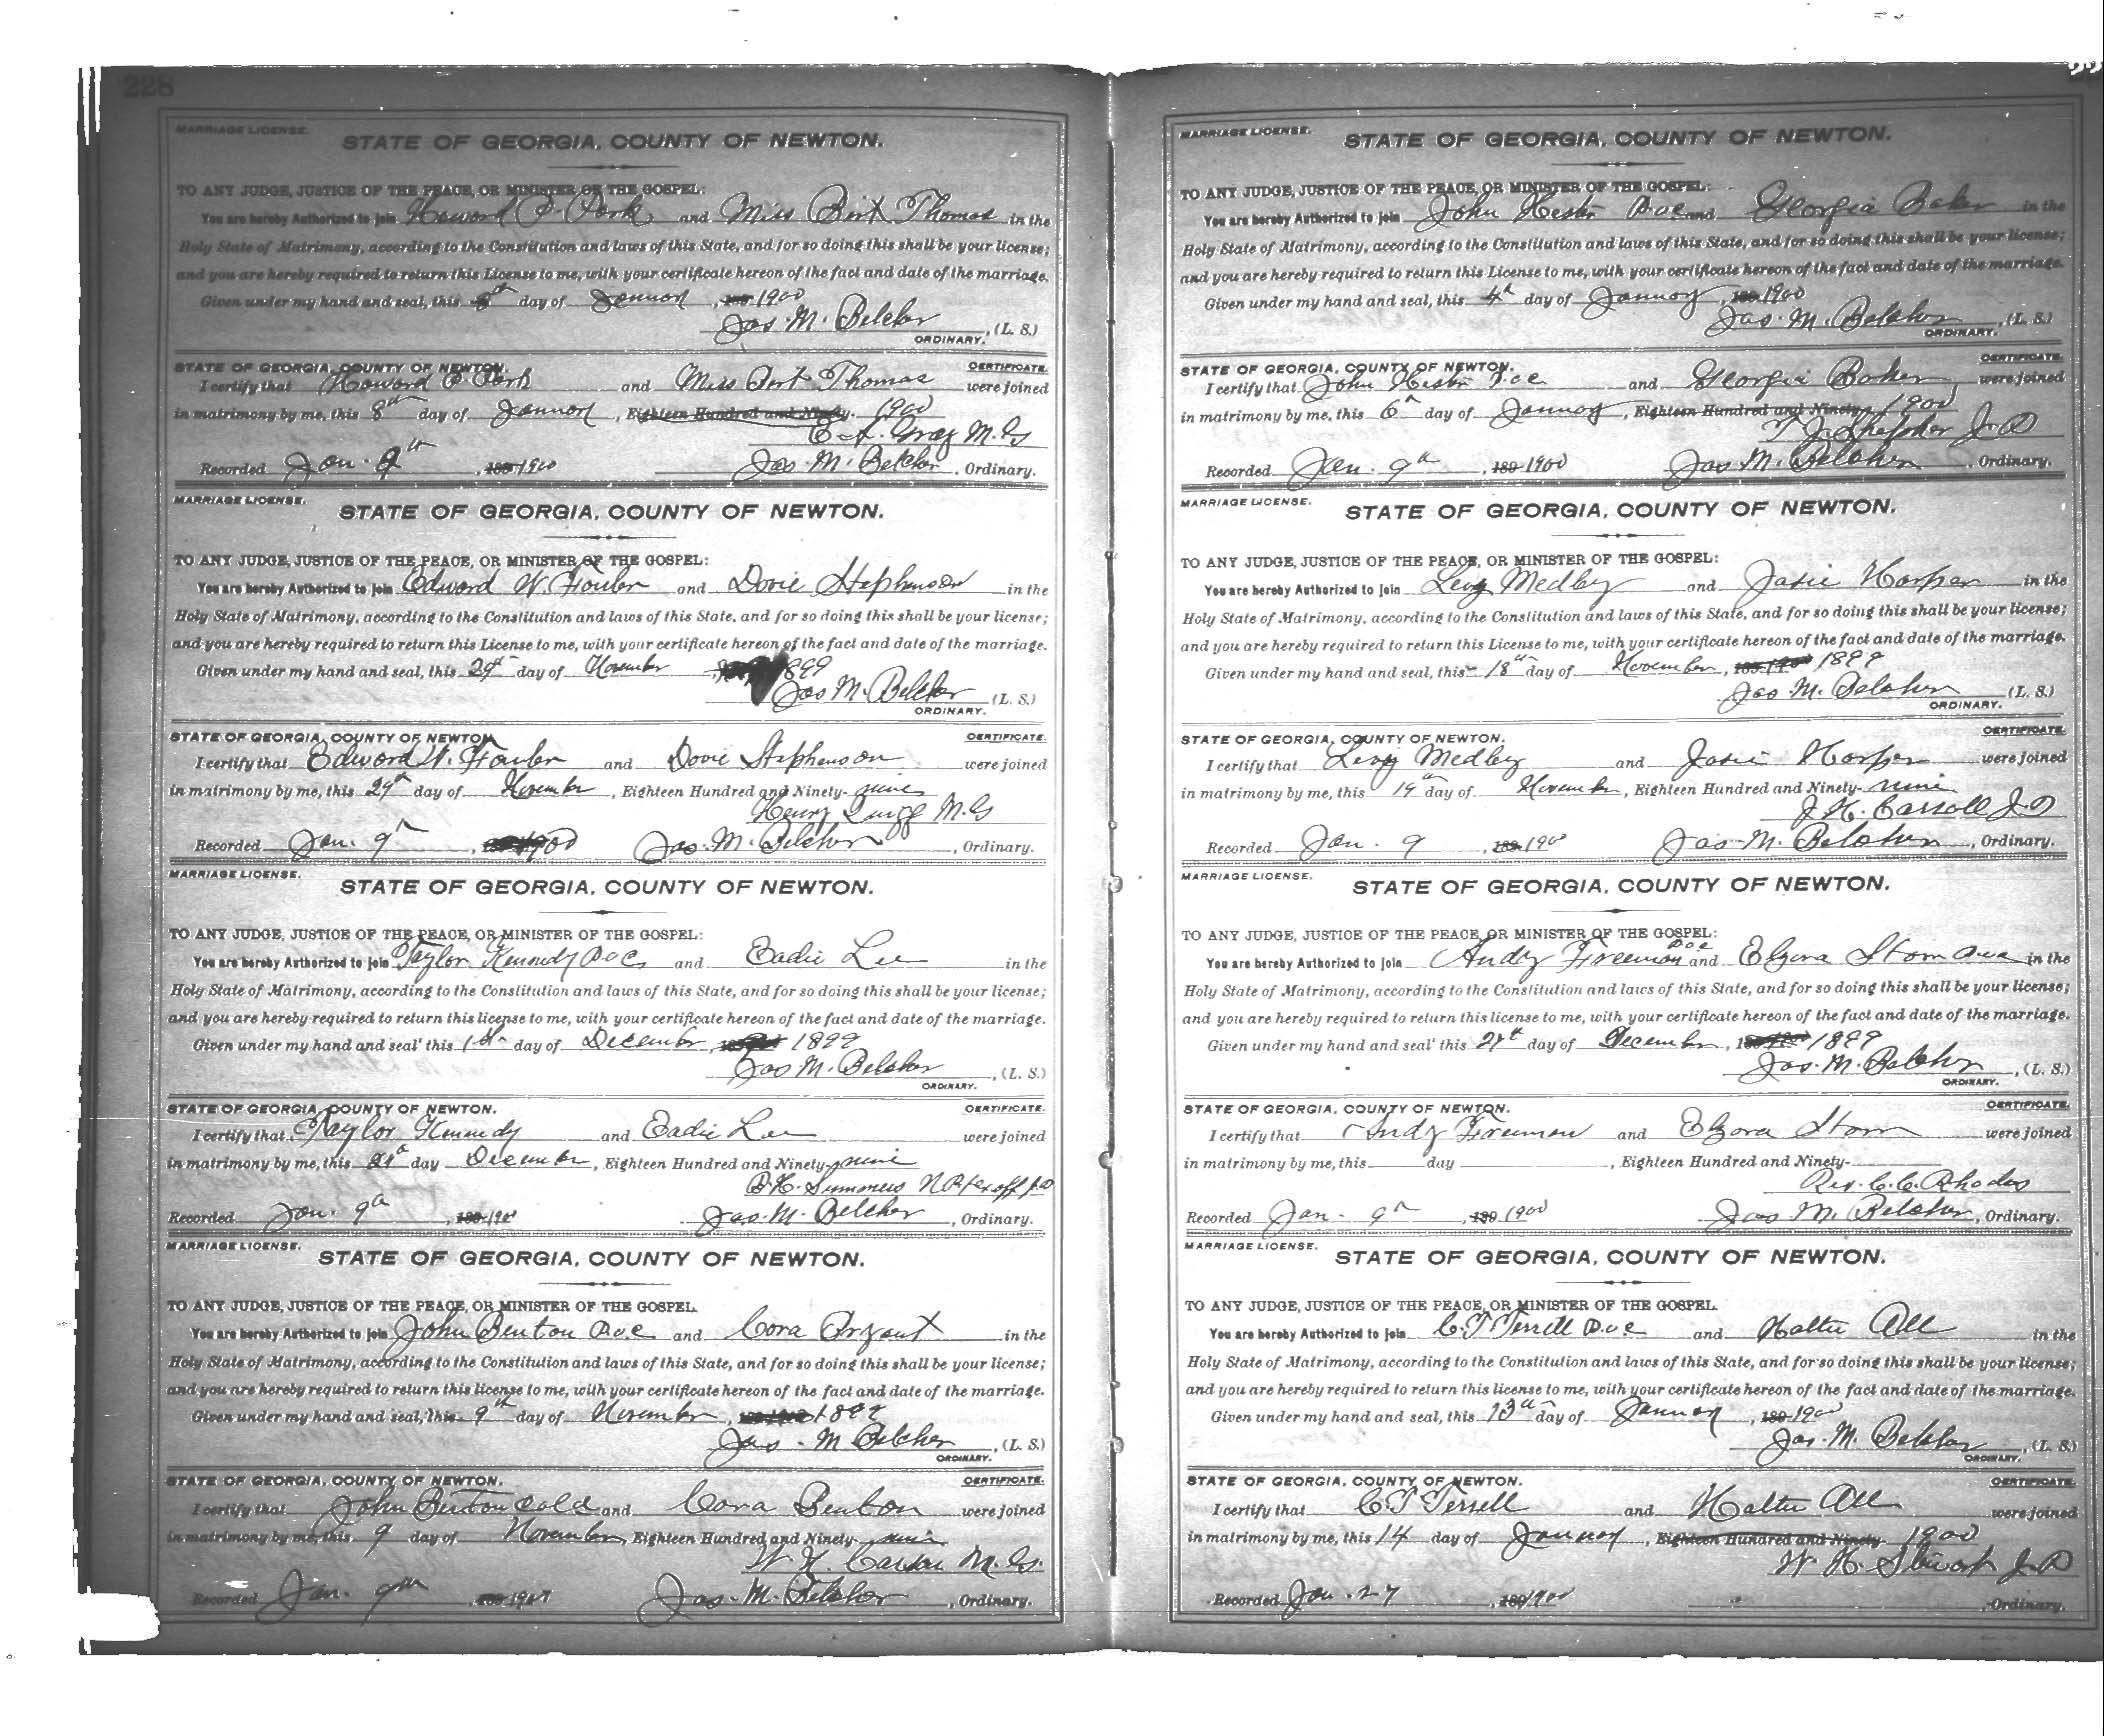 228
MARRIAGE LICENSE.
STATE OF GEORGIA, COUNTY OF NEWTON.
TO ANY JUDGE, JUSTICE OF THE PEACE, OR MINISTER OF THE GOSPEL:
You are hereby Authorized to join Howard P. Park and Miss Thomas in the
Holy State of Matrimony, according to the Constitution and laws of this State, and for so doing this shall be your license;
and you are hereby required to return this License to me, with your certificate hereon of the fact and date of the marriage.
Given under my hand and seal, this 8th day of January, 189 1900
Jas. M. Belcher, (L. S.)
ORDINARY.
STATE OF GEORGIA, COUNTY OF NEWTON. CERTIFICATE.
I certify that Howard P. Park and Miss Thomas were joined
in matrimony by me, this 8th day of January, Eighteen Hundred and Ninety- 1900
E. A. Gray M.G.
Recorded Jan. 9th, 189 1900 Jas. M. Belcher, Ordinary.
MARRIAGE LICENSE.
STATE OF GEORGIA, COUNTY OF NEWTON.
TO ANY JUDGE, JUSTICE OF THE PEACE, OR MINISTER OF THE GOSPEL:
You are hereby Authorized to join Edward W. Fowler and Dovie Stephenson in the
Holy State of Matrimony, according to the Constitution and laws of this State, and for so doing this shall be your license;
and you are hereby required to return this License to me, with your certificate hereon of the fact and date of the marriage.
Given under my hand and seal, this 29th day of November, 1899
Jas M. Belcher (L. S.)
ORDINARY.
STATE OF GEORGIA, COUNTY OF NEWTON. CERTIFICATE.
I certify that Edward W. Fowler and Dovie Stephenson were joined
in matrimony by me, this 29th day of November, Eighteen Hundred and Ninety-nine
Henry M.G
Recorded Jan. 9th, 1900 Jas. M. Belcher, Ordinary.
MARRIAGE LICENSE.
STATE OF GEORGIA, COUNTY OF NEWTON.
TO ANY JUDGE, JUSTICE OF THE PEACE, OR MINISTER OF THE GOSPEL:
You are hereby Authorized to join Taylor Kennedy and Eadie Lee in the
Holy State of Matrimony, according to the Constitution and laws of this State, and for so doing this shall be your license;
and you are hereby required to return this license to me, with your certificate hereon of the fact and date of the marriage.
Given under my hand and seal this 1st day of December, 1899
Jas M. Belcher, (L. S.)
ORDINARY.
STATE OF GEORGIA, COUNTY OF NEWTON. CERTIFICATE.
I certify that Taylor Kennedy and Eadie Lee were joined
in matrimony by me, this day December, Eighteen Hundred and Ninety-nine
Summers
Recorded Jan. 9th, 189 1900 Jas. M. Belcher, Ordinary.
MARRIAGE LICENSE.
STATE OF GEORGIA, COUNTY OF NEWTON.
TO ANY JUDGE, JUSTICE OF THE PEACE, OR MINISTER OF THE GOSPEL.
You are hereby Authorized to join John Benton and Cora Bryant in the
Holy State of Matrimony, according to the Constitution and laws of this State, and for so doing this shall be your license;
and you are hereby required to return this license to me, with your certificate hereon of the fact and date of the marriage.
Given under my hand and seal, this 9th day of November, 1899
Jas. M Belcher, (L. S.)
ORDINARY.
STATE OF GEORGIA, COUNTY OF NEWTON. CERTIFICATE.
I certify that John Benton Cold and Cora Benton were joined
in matrimony by me, this 9 day of November, Eighteen Hundred and Ninety-nine
M.G.
Recorded Jan. 9th, 189 Jas. M. Belcher, Ordinary.
MARRIAGE LICENSE.
STATE OF GEORGIA, COUNTY OF NEWTON.
TO ANY JUDGE, JUSTICE OF THE PEACE, OR MINISTER OF THE GOSPEL:
You are hereby Authorized to join John Hester and Georgia Baker in the
Holy State of Matrimony, according to the Constitution and laws of this State, and for so doing this shall be your license;
and you are hereby required to return this License to me, with your certificate hereon of the fact and date of the marriage.
Given under my hand and seal, this 4th day of January, 189 1900
Jas. M. Belcher, (L. S.)
ORDINARY.
STATE OF GEORGIA, COUNTY OF NEWTON. CERTIFICATE.
I certify that John Hester and Georgia Baker, were joined
in matrimony by me, this 6th day of January, Eighteen Hundred and Ninety- 1900
T. J. Shepher J.P
Recorded Jan. 9th, 189 1900 Jas M. Belcher, Ordinary.
MARRIAGE LICENSE.
STATE OF GEORGIA, COUNTY OF NEWTON.
TO ANY JUDGE, JUSTICE OF THE PEACE, OR MINISTER OF THE GOSPEL:
You are hereby Authorized to join Levy Medley and Josie Harper in the
Holy State of Matrimony, according to the Constitution and laws of this State, and for so doing this shall be your license;
and you are hereby required to return this License to me, with your certificate hereon of the fact and date of the marriage.
Given under my hand and seal, this 18th day of November, 1899
Jas M. Belcher (L. S.)
ORDINARY.
STATE OF GEORGIA, COUNTY OF NEWTON. CERTIFICATE.
I certify that Levy Medley and Josie Harper were joined
in matrimony by me, this 19th day of November, Eighteen Hundred and Ninety-nine
J. H. Carroll J.P
Recorded Jan. 9, 189 190 Jas. M. Belcher, Ordinary.
MARRIAGE LICENSE.
STATE OF GEORGIA, COUNTY OF NEWTON.
TO ANY JUDGE, JUSTICE OF THE PEACE, OR MINISTER OF THE GOSPEL:
You are hereby Authorized to join Andy Freeman and Elzora Storn in the
Holy State of Matrimony, according to the Constitution and laws of this State, and for so doing this shall be your license;
and you are hereby required to return this license to me, with your certificate hereon of the fact and date of the marriage.
Given under my hand and seal this day of December, 1899
Jas. M. Belcher, (L. S.)
ORDINARY.
STATE OF GEORGIA, COUNTY OF NEWTON. CERTIFICATE.
I certify that Andy Freeman and Elzora Storn were joined
in matrimony by me, this day , Eighteen Hundred and Ninety-
Rev. C. C. Rhodes
Recorded Jan. 9th, 189 1900 Jas M. Belcher, Ordinary.
MARRIAGE LICENSE.
STATE OF GEORGIA, COUNTY OF NEWTON.
TO ANY JUDGE, JUSTICE OF THE PEACE, OR MINISTER OF THE GOSPEL.
You are hereby Authorized to join C. T Terrell and Hattie All in the
Holy State of Matrimony, according to the Constitution and laws of this State, and for so doing this shall be your license;
and you are hereby required to return this license to me, with your certificate hereon of the fact and date of the marriage.
Given under my hand and seal, this 13th day of January, 189 1900
Jas. M. Belcher, (L. S.)
ORDINARY.
STATE OF GEORGIA, COUNTY OF NEWTON. CERTIFICATE.
I certify that C. T Terrell and Hattie All were joined
in matrimony by me, this 14 day of January, Eighteen Hundred and Ninety- 1900
W. H. Stewart J.P
Recorded Jan. 27, 189 1900 , Ordinary.